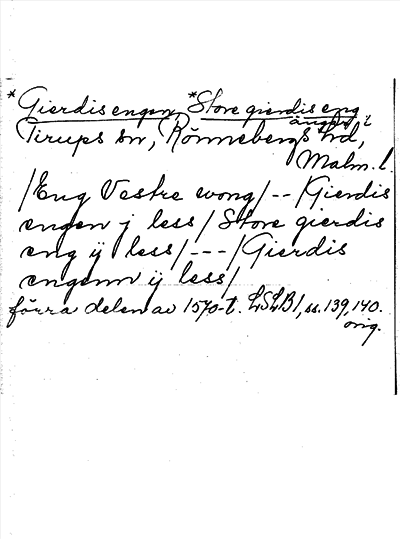 *Gierdis engen, *Store gierdis eng
ängar i
Tirups sn, Rönnebergs hd,
Malm. l.
/Eng Vestre wong/ -- /Gierdis
engen j less/ Store gierdis
eng ij less/ --- /Gierdis
engenn ij less/
förra delen av 1570-t. LSLB1, ss. 139, 140.
orig.